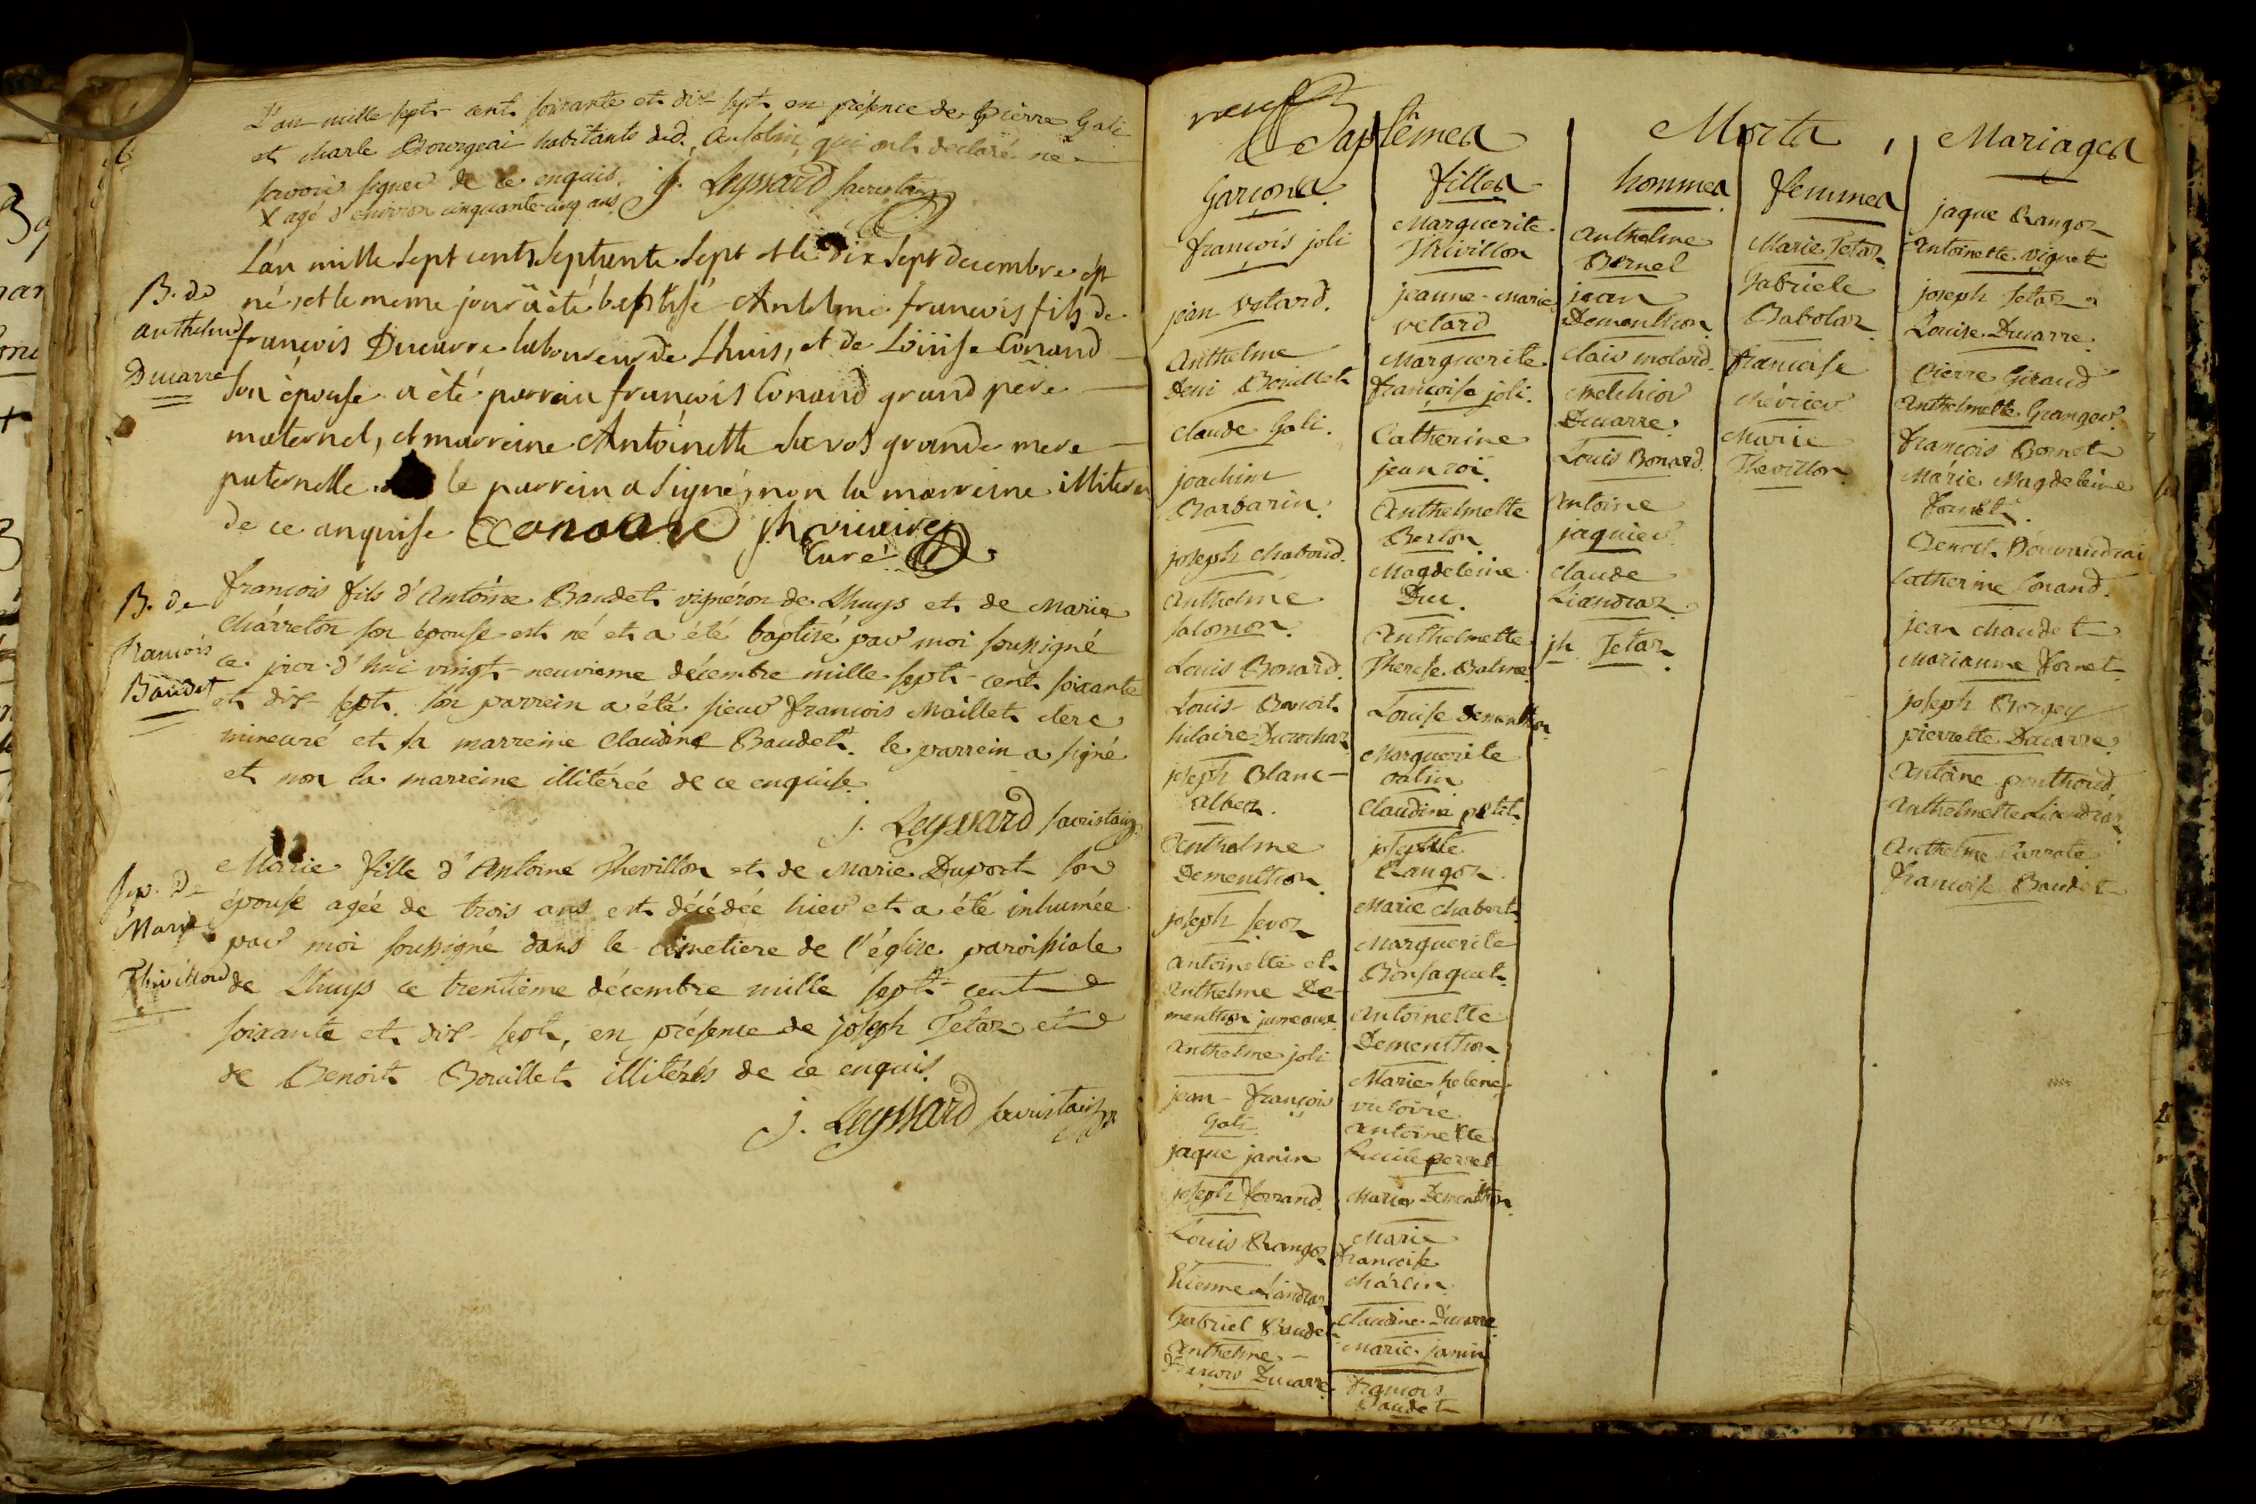 L'an mille sept cent soixante et dix sept en présence de pierre Gali
et charle Bourgeai habitants dud. qui ont declaré ne
savoir signer de ce enquis. j. Leyssard sacristain
X agé d'environ cinquante cinq ans
L'an mille sept cents septente sept et le dix sept decembre est
né, et le meme jour à été baptisé Anthelme francois fils de
francois Ducarre laboureur de Lhuis, et de Loüise Conand
son épouse a été parrain francois Conand grand père
maternel, et marreine Antoinette grande mere
paternelle le parrein a signé, non la marreine illiterée
de ce anquise Conand jh vivier
Curé
B. de
anthelme
Ducarre
B. de
francois
Baudet
francois fils d'Antoine Baudet vigneron de Lhuys et de Marie
Charreton son épouse est né et a été baptisé par moi soussigné
ce jour d'hui vingt-neuvieme décembre mille sept-cent soixante
et dix-sept. son parrein a été sieur francois Maillet clerc
minoré et sa marreine Claudine Baudet. le parrein a signé
et non la marreine illitérée de ce enquise.
j. Leyssard sacristain
Sep. De
Marie
Thivillon
Marie fille d'Antoine Thevillon et de Marie Duport son
épouse agée de trois ans est décédée hier et a été inhumée
par moi soussigné dans le cimetiere de l'église paroissiale
de Lhuys ce trentième décembre mille sept-cent
soixante et dix-sept, en présence de joseph Tetaz et
de Benoit Bouillet illiterés de ce enquis.
j. Leyssard sacristain
Baptêmes
Garçons
françois joli
jean Vetard.
Anthelme
Deni Bouillet
Claude Gali.
joachim
Barbarin.
joseph Chaboud.
Anthelme
Salomon.
Louis Bonard.
Louis Benoit
hilaire Durochaz
joseph Blanc
Albez.
Anthelme
Dementhon.
joseph Sevoz
Antoinette et
Anthelme De-
menthon jumeaux
Anthelme joli
jean-françois
Gali.
jaque janin
joseph ferrand.
Louis Rangoz
Etienne Liandraz
Gabriel Baudet
Anthelme
francois Ducarre
filles
Marguerite
Thivillon
jeanne-marie
vetard
Marguerite
françoise joli.
Catherine
jeanroi
Anthelmette
Berlion
Magdeleine
Duc.
Anthelmette
Therese Balme
Louise Dementhon
Marguerite
Claudine petit.
josephte
Rangoz.
Marie Chabert
Marguerite
Bonsaquet
Antoinette
Dementhon
Marie helene
victoire
Antoinette
Lucile perret
Marie Dementhon.
Marie
francoise
Charlin
Claudine Ducarre
Marie janin
francois
Baudet
Morts
hommes
Anthelme
Bornel
jean
Dementhon
Clais molard.
melchior
Ducarre.
Louis Bonard.
Antoine
jaquier
Claude
Liandraz.
jh Tetaz
femmes
Marie Tetaz
Gabriele
Babolaz
francoise
Mérier
Marie
Thevillon
Mariages
jaque Rangoz
Antoinette vignet
joseph Tetaz
Louise Ducarre.
Pierre Giraud
Anthelmette Granger.
françois Bornet
Marie Magdeleine
fornet.
Catherine Conand.
jean chaudet
Marianne fornet
joseph Borgey
pierrette Ducarre.
Antoine ponthoud.
Anthelmette Liandraz
Anthelme
francoise Baudet